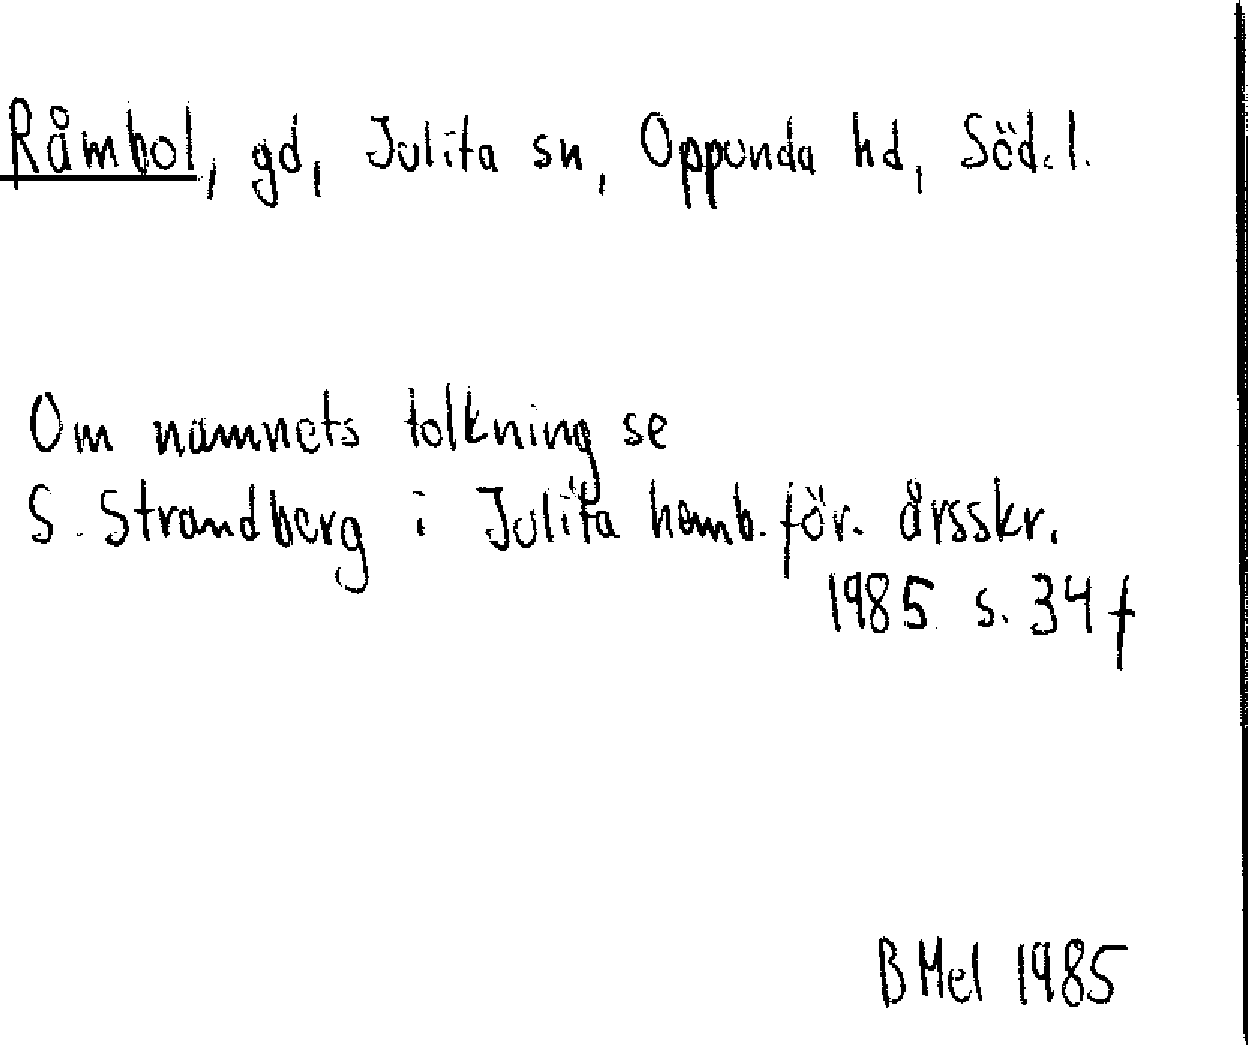 Råmbol, gd, Julita sn, Oppunda hd, Söd.l.
Om namnets tolkning se
S. Strandberg i Julita hemb. för. årsskr.
1985 s. 34 f
B Mel 1985